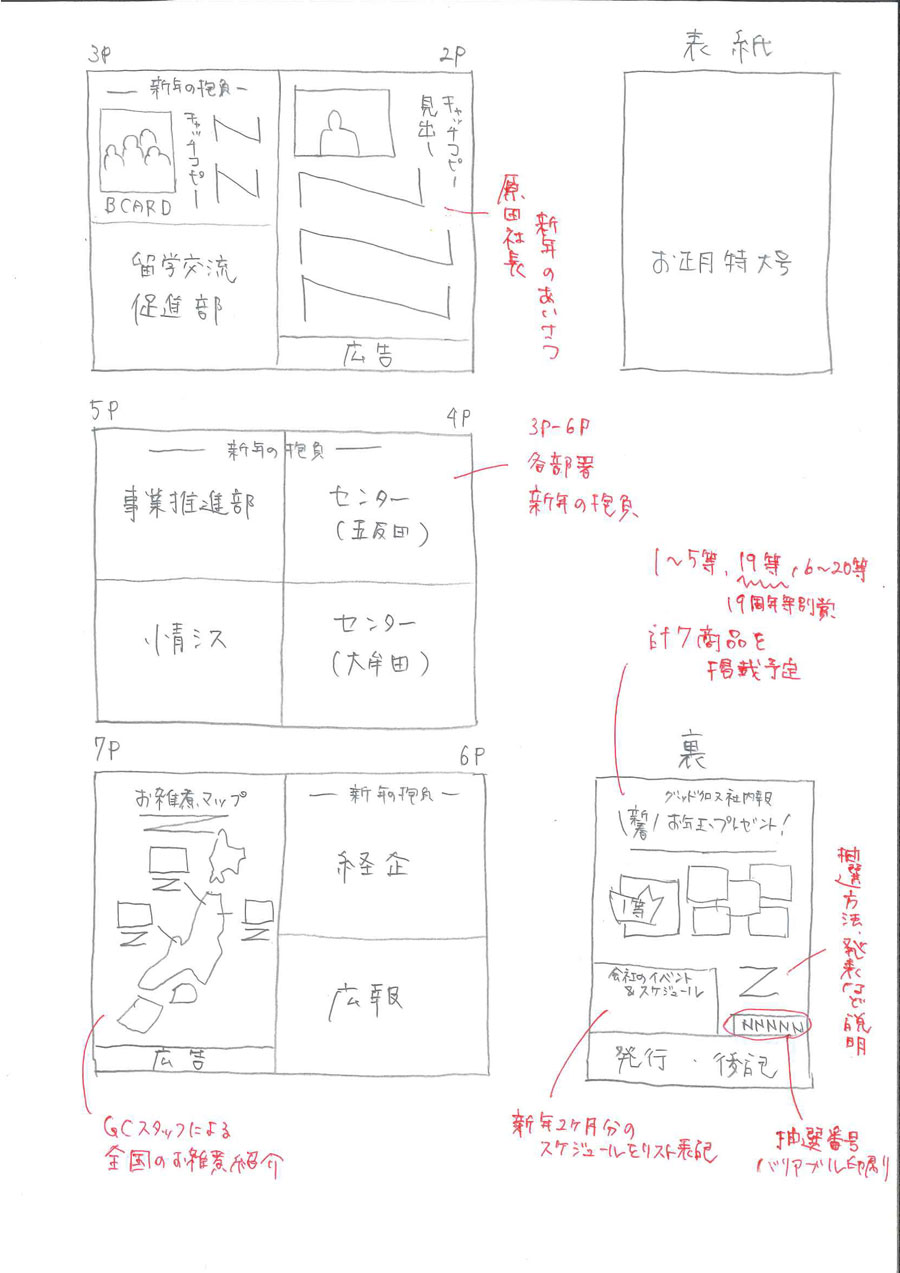 表紙
お正月特大号
3P
2P
新年の抱負
キャッチコピー
BCARD
留学交流
促進部
キャッチコピー
見出し
広告
新年のあいさつ
原田社長
5P
4P
新年の抱負
事業推進部
センター
(五反田)
情シス
センター
(大牟田)
3P-6P
各部署
新年の抱負
7P
6P
お雑煮マップ
広告
新年の抱負
経企
広報
GCスタッフによる
全国のお雑煮紹介
1〜5等、19等、6〜20等
19周年特別賞
計7商品を
掲載予定
裏
グッドクロス社内報
新春
お年玉プレゼント!
1等
会社のイベント
&スケジュール
NNNNN
発行・後記
抽選方法、発表など説明
新年2ヶ月分の
スケジュールをリスト表記
抽選番号
バリアブル印刷り